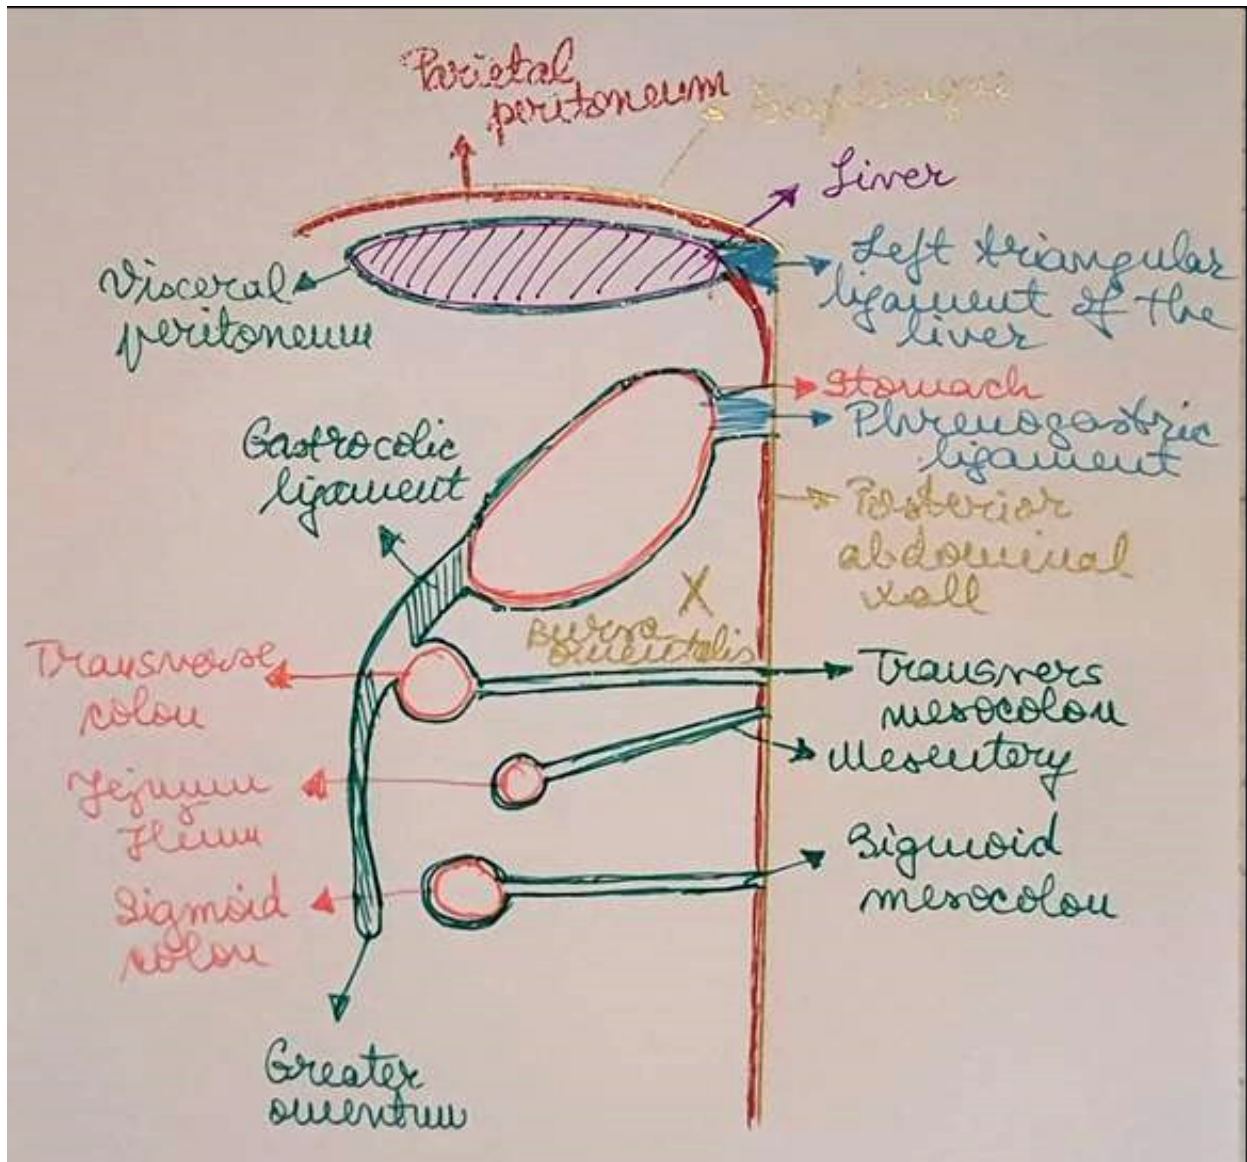 Parietal
peritoneum
Diaphragm
Liver
Left triangular
ligament of the
liver
Visceral
peritoneum
Stomach
Phrenogastric
ligament
Gastrocolic
ligament
Posterior
abdominal
wall
X
Bursa
omentalis
Transverse
colon
Transvers
mesocolon
Mesentery
Jejunum
Ileum
Sigmoid
mesocolon
Sigmoid
colon
Greater
omentum